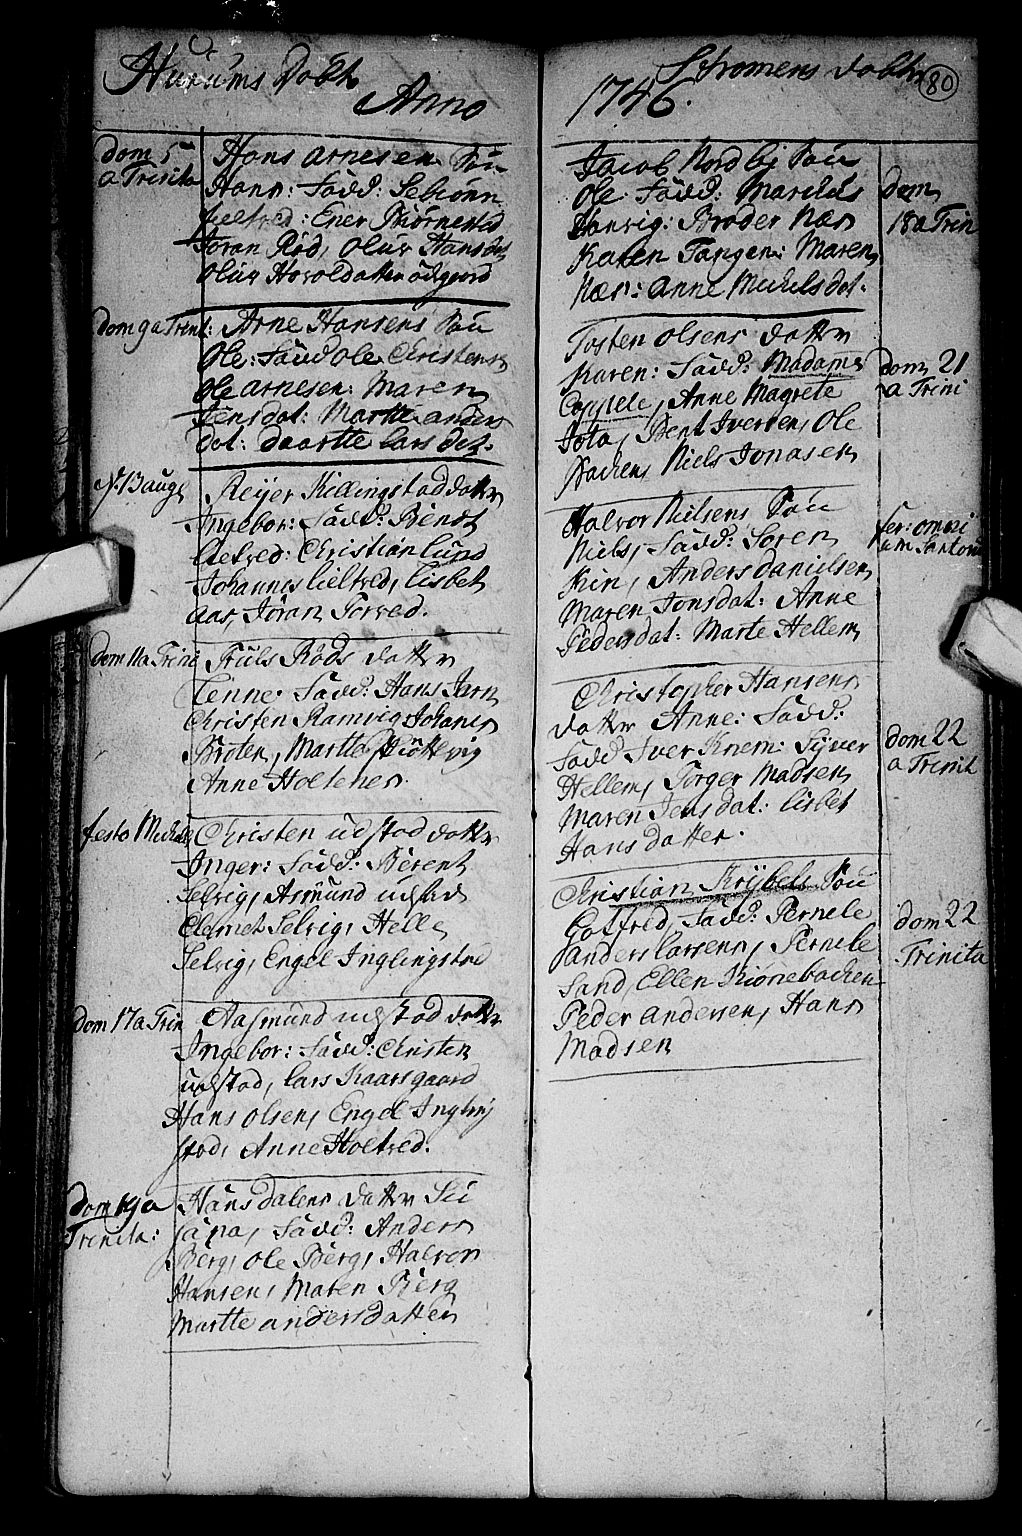 Hurums Dobte
Anno
dom 5
a Trinita
Hans Arnesens Søn
Hans: Fadd:
Ener Biørnestad
Joran Rød, Oluv Hansdat
Oluv Haroldatter ødegaard
dom 9 a Trinit:
Arne Hansens Søn
Ole: Fadd Ole Christens
Ole Arnesen: Maren
Jensdat: Marte Anders
dat: Daartte Lars dat.
13 aug
Reijer Killingstad datter
Ingebor: Fadd: Bendt
Christian Lund
Johannes lieltred, Lisbet
Aas, Jøran Torved.
dom 11 a Trini
Truls Røds datter
Lenne. Fadd: Hans Jern
Christen Ramvig Johanes
Broten, Martte Støttvig
Anne Holtenes.
festo Michael
Christen udstad datter
Inger: Fadd: Berent
Selvig, Asmund udstad
Clemet Selvig, Helle
Selvig, Engel Inglingstad
dom 17 a Trin
Aasmund udstad datter
Ingebor: Fadd: Christen
udstad, Lars Kaarsgaard
Hans Olsen, Engel Ingling
stad, Anne Holtved.
dom 19 a
Trinita:
Hans dalens datter Su
sapa, Fadd: Anders
Berg, Ole Berg, Halvor
Hansen, Maren Berg
Martte andersdatter
Strømens dobte
80
1746.
Jacob Nordbij Søn
Ole: Fadd: Marcus
Hanvig: Broder Nær
Karen Tangen: Maren
Nær: Anne Michelsdat.
dom
18 a Trin
Tosten Olsens datter
Karen: Fadd: Madame
Coppele, Anne Magrete
Jota, Bent Iversen, Ole
Bachen, Niels Jonasen
dom 21
a Trini
Halvor Nielsens Søn
Niels, Fadd: Soren
Kin, Anders danielsen
Maren Jonsdat: Anne
Pedersdat: Marte Hellem
fer: omni
um Santoru
Christopher Hansens
datter Anne: Fadd:
Fadd Iver Knem: Syver
Hellem, Torger Madsen
Maren Jensdat: Lisbet
Hansdatter.
dom 22
a Trinit
Christian Krijbels Søn
Gotfred, Fadd: Pernele
Anders Larsens, Pernele
Sand, Ellen Kionebachen
Peder Andersen, Hans
Madsen
dom 22
Trinita